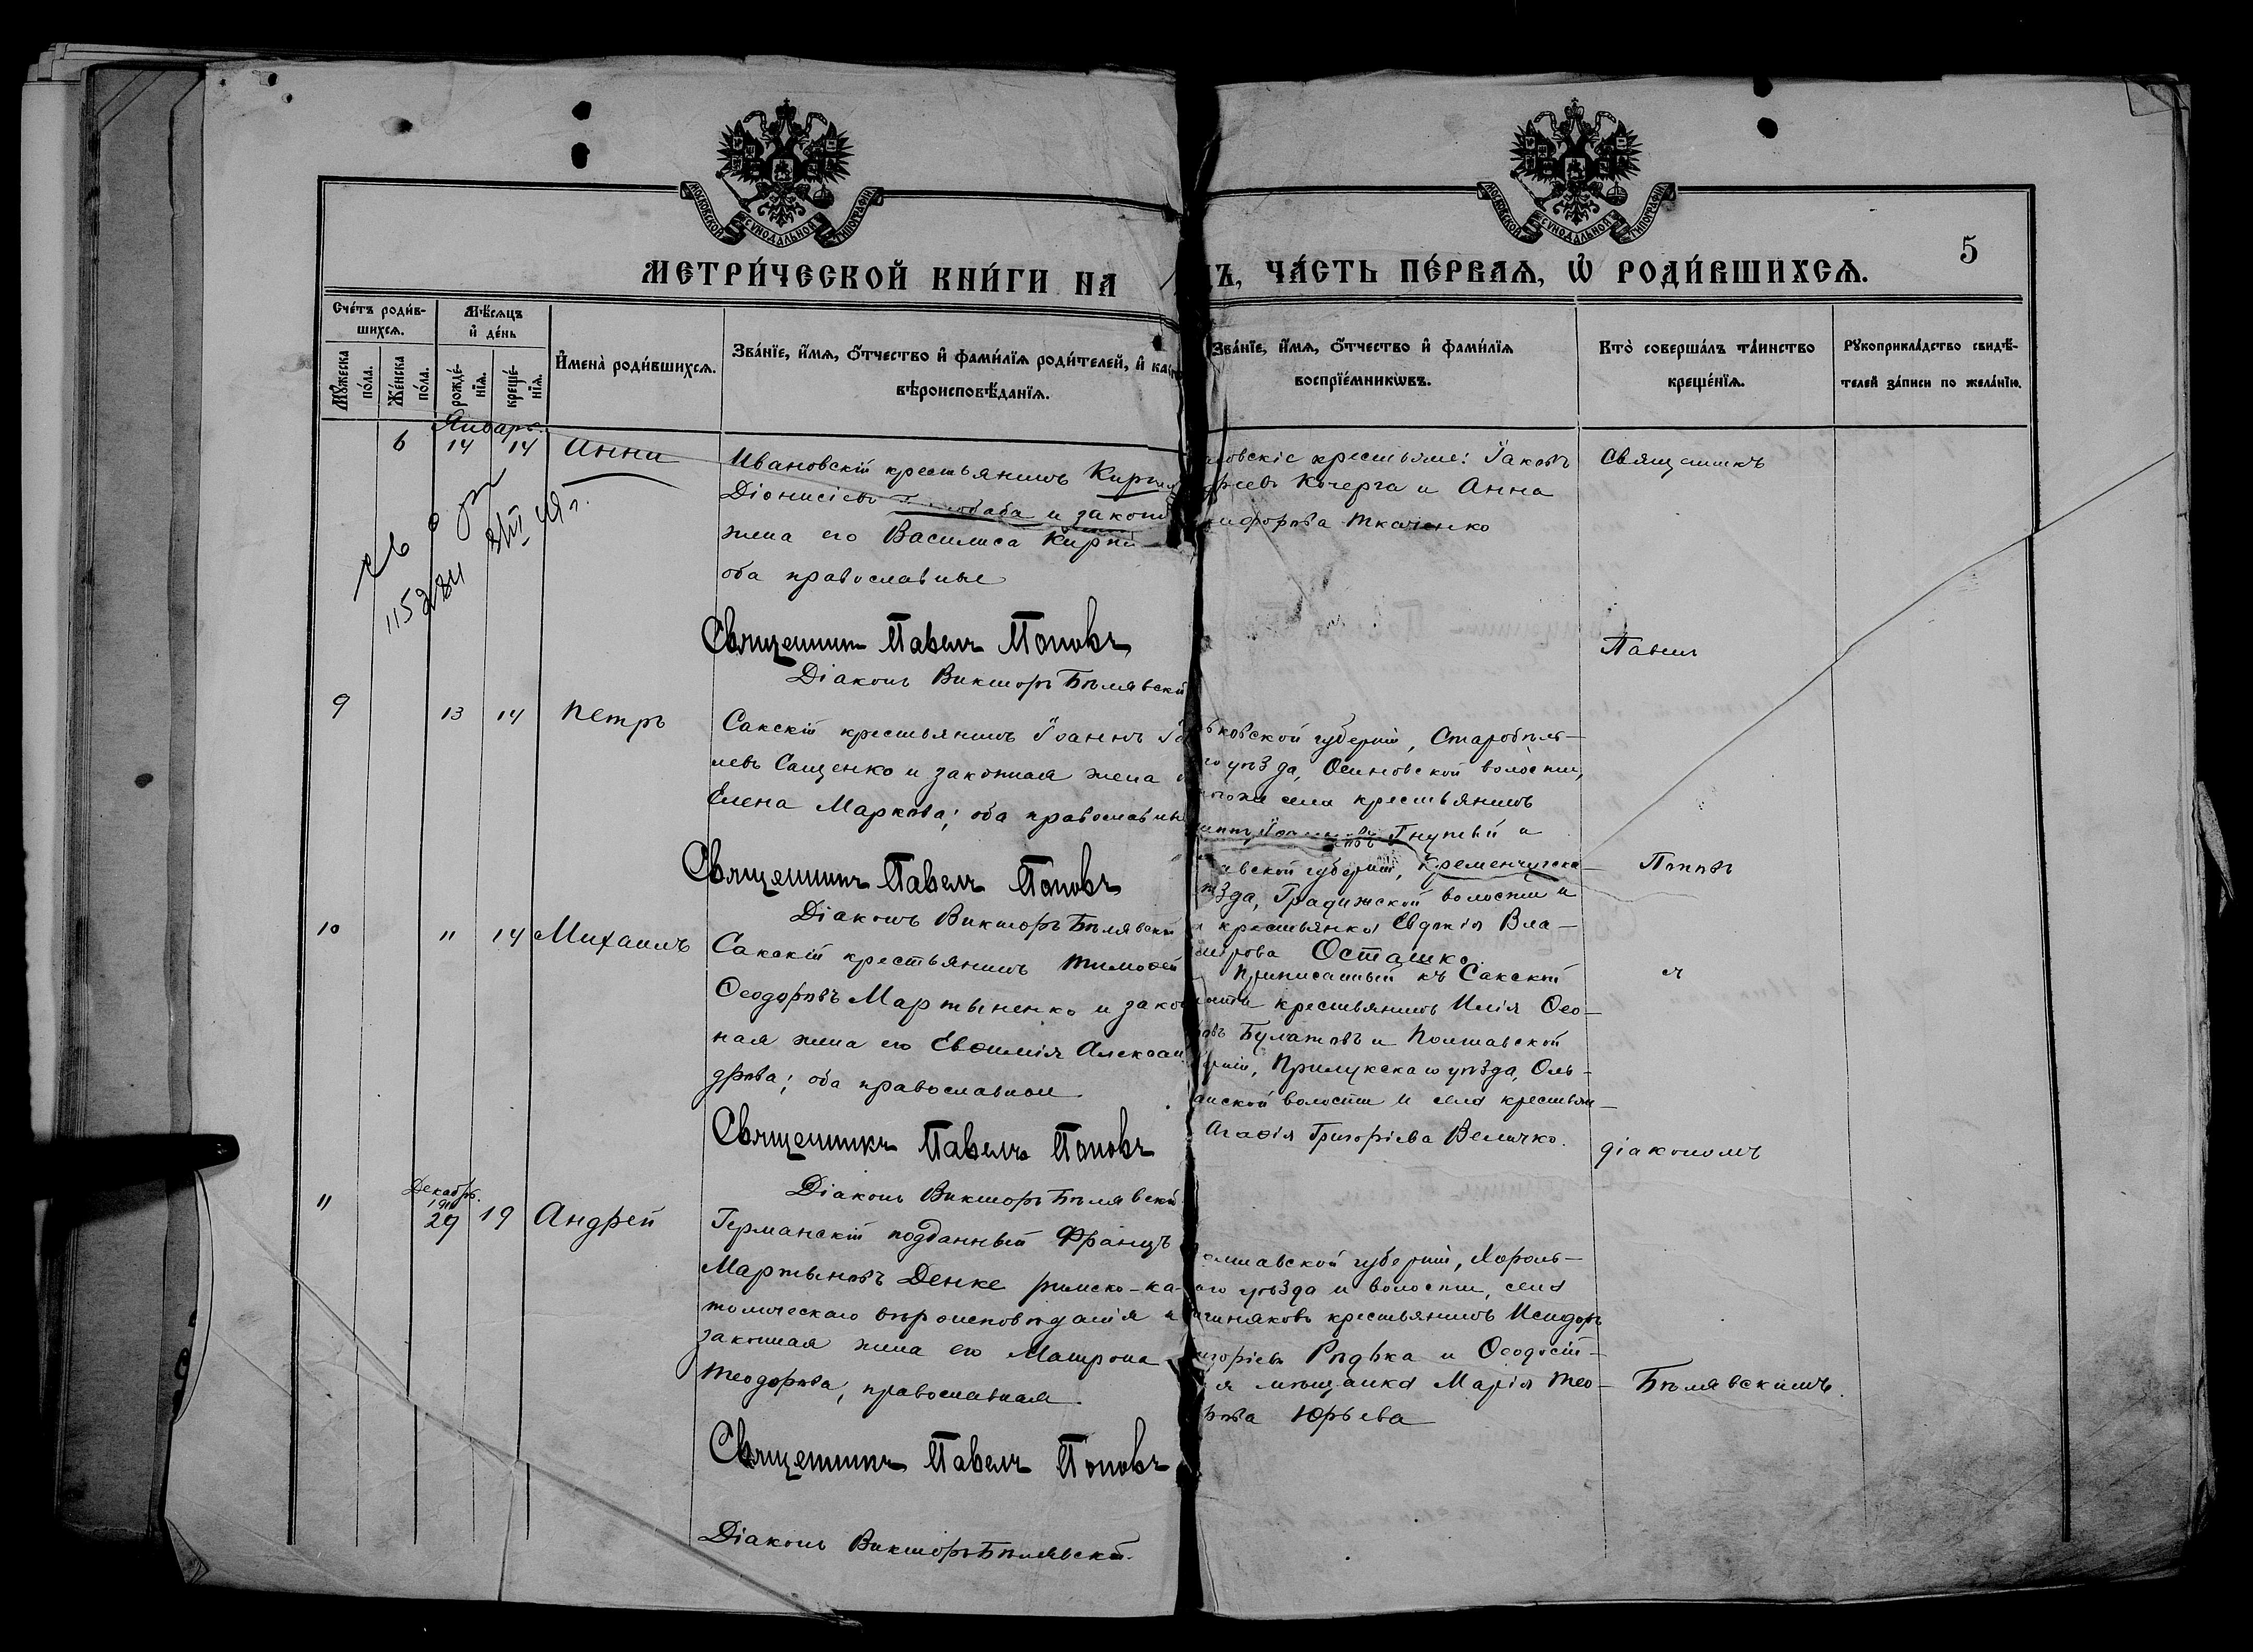 МОСКОВСКОЙ СѴНОДАЛЬНОЙ ТИПОГРАФІИ
МОСКОВСКОЙ СѴНОДАЛЬНОЙ ТИПОГРАФІИ
5
МЕТРИ́ЧЕСКОЙ КНИ́ГИ НА
Ъ, ЧА́СТЬ ПЕ́РВАѦ, Ѽ РОДИ́ВШИХСѦ.
Сче́тъ роди́в-
шихсѧ.
Мꙋжеска
по́ла.
Же́нска
по́ла.
Мѣ́сѧцъ
и҆ де́нь
рожде́-
нїѧ.
креще́-
нїѧ.
И҆мена̀ роди́вшихсѧ.
Зва́нїе, и҆́мѧ, ѻ҆́тчество и҆ фами́лїѧ роди́телей, и҆ ка
вѣроисповѣ́данїѧ.
Зва́нїе, и҆́мѧ, ѻ҆́тчество и҆ фами́лїѧ
воспрїе́мникѡвъ.
Кто̀ соверша́лъ та́инство
креще́нїѧ.
Рꙋкоприкла́дство свидѣ́-
телей за́писи по жела́нїю.
Январь.
6 14 14 Анна
Ивановскій крестьянинъ Кирил
Діонисіевъ и закон
жена его Василиса Кирил
оба православные
115284
Священникъ Павелъ Поповъ
Діаконъ Викторъ Бѣлявскій
новскіе крестьяне: Іаковъ
Кочерга и Анна
кифорова Ткаченко
Священникъ
Павелъ
9 13 14 Петръ
Сакскій крестьянинъ Іоаннъ
левъ Сащенко и законная жена
Елена Маркова; оба православны
Священникъ Павелъ Поповъ
Діаконъ Викторъ Бѣлявскій
ьковской губерніи, Старобѣль-
го уѣзда, Осиновской волости,
села крестьянинъ
Гнутый и
авской губерніи, Кременчугска
ѣзда, Градижской волости и
крестьянка Евдокія Вла-
мірова Осташко.
Поповъ
10 11 14 Михаилъ
Сакскій крестьянинъ Тимоѳей
Ѳеодоровъ Мартыненко и закон
ная жена его Евѳимія Алексан
дрова; оба православные.
Священникъ Павелъ Поповъ
Діаконъ Викторъ Бѣлявскій
Приписанный къ Сакской
ости крестьянинъ Илія Ѳео-
ровъ Булатовъ и Полтавской
ерніи, Прилукскаго уѣзда, Оль-
анской волости и села крестьян-
Агаѳія Григоріева Величко.
съ
діакономъ
Декабрь.
1910
11 29 19 Андрей
Германскій подданный Францъ
Мартыновъ Денке римско-ка-
толическаго вѣроисповѣданія и
законная жена его Матрона
Ѳеодорова, православная.
Священникъ Павелъ Поповъ
Діаконъ Викторъ Бѣлявскій.
олтавской губерніи, Хороль-
аго уѣзда и волости, села
крестьянинъ Исидоръ
игоріевъ Рѣдька и Ѳеодосій-
я мѣщанка Марія Ѳео-
рова Юрьева
Бѣлявскимъ.